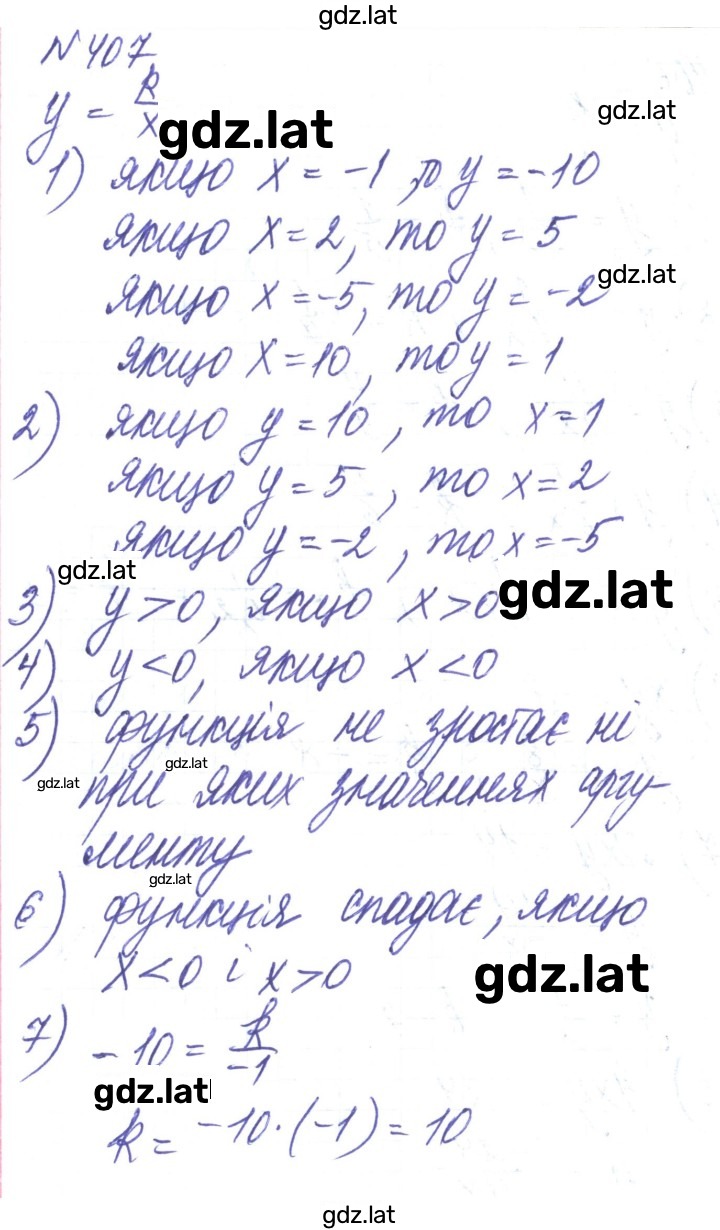 gdz.lat
№407
y = k/x
gdz.lat
gdz.lat
1) якщо x = -1, то y = -10
якщо x = 2, то y = 5
gdz.lat
якщо x = -5, то y = -2
якщо x = 10, то y = 1
2) якщо y = 10, то x = 1
якщо y = 5, то x = 2
якщо y = -2, то x = -5
gdz.lat
gdz.lat
3) y > 0, якщо x > 0
4) y < 0, якщо x < 0
5) функція не зростає ні
gdz.lat
gdz.lat
при яких значеннях аргу-
менту
gdz.lat
6) функція спадає, якщо
x < 0 і x > 0
gdz.lat
7) -10 = k/-1
gdz.lat
k = -10·(-1) = 10
gdz.lat